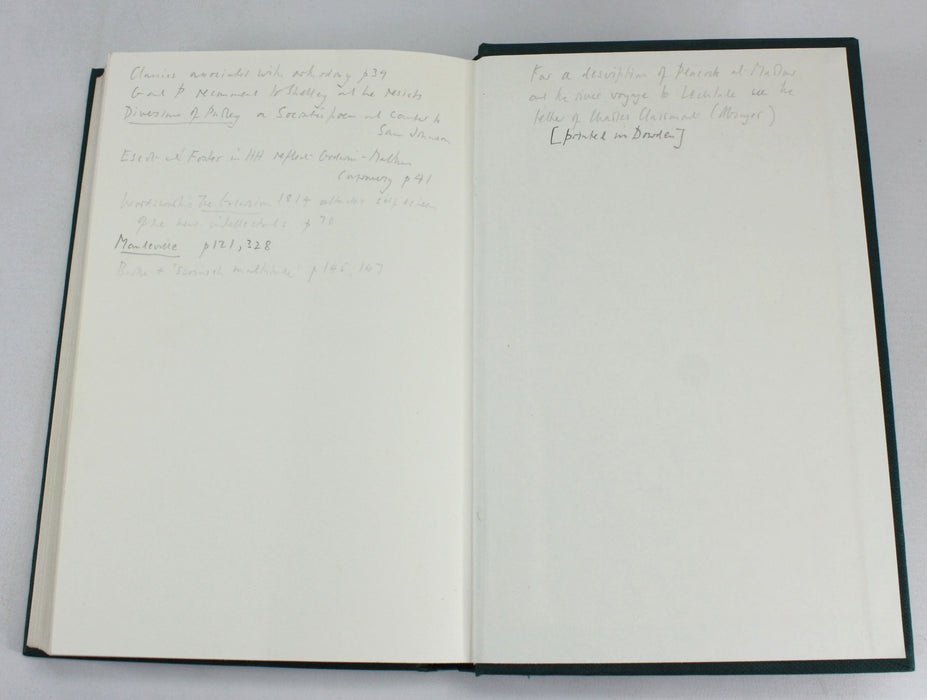 Classics associated with orthodoxy p39
but P recommend to Shelley at he resists
Diversions of Purley as Socratic poem at counter to
Sam Johnson
Escot at Foster in HH reflect Godwin-Malthus
controversy p 41
Wordsworth's The Excursion 1814 attacks scepticism
of the new intellectuals p 70
Mandeville p121, 328
Burke + 'swinish multitude' p 146, 147
For a description of Peacock at Marlow
and the river voyage to Lechlade see the
letter of Charles Clairmont (Abinger)
[printed in Dowden]